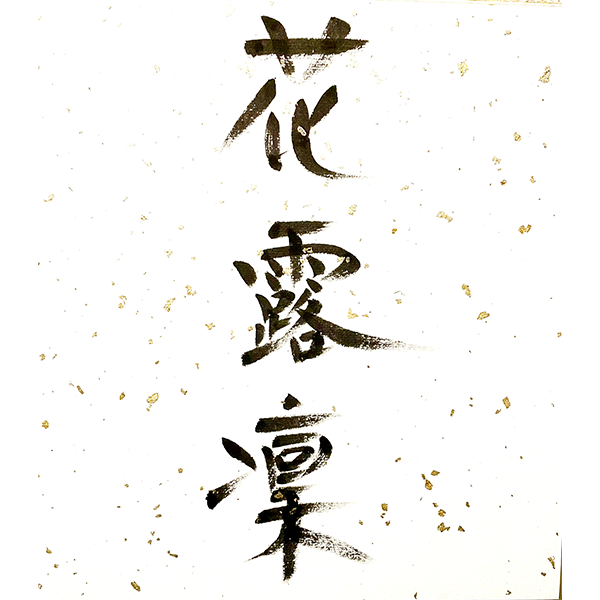 花露凜